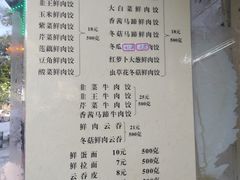 韭王鲜肉饺
玉米鲜肉饺
紫菜鲜肉饺
芹菜鲜肉饺
莲藕鲜肉饺
豆角鲜肉饺
酸菜鲜肉饺
18元
500克
大白菜鲜肉饺
香茜马蹄鲜肉饺
冬菇马蹄鲜肉饺
冬瓜
鲜肉饺
红萝卜大葱鲜肉饺
虫草花冬菇鲜肉饺
18元
500克
韭菜牛肉饺
韭王牛肉饺
芹菜牛肉饺
香茜马蹄牛肉饺
25元
500克
鲜肉云吞
冬菇鲜肉云吞
21元
500克
鲜蛋面 10元 500克
鲜拉面 7元 500克
云吞皮 8元 500克